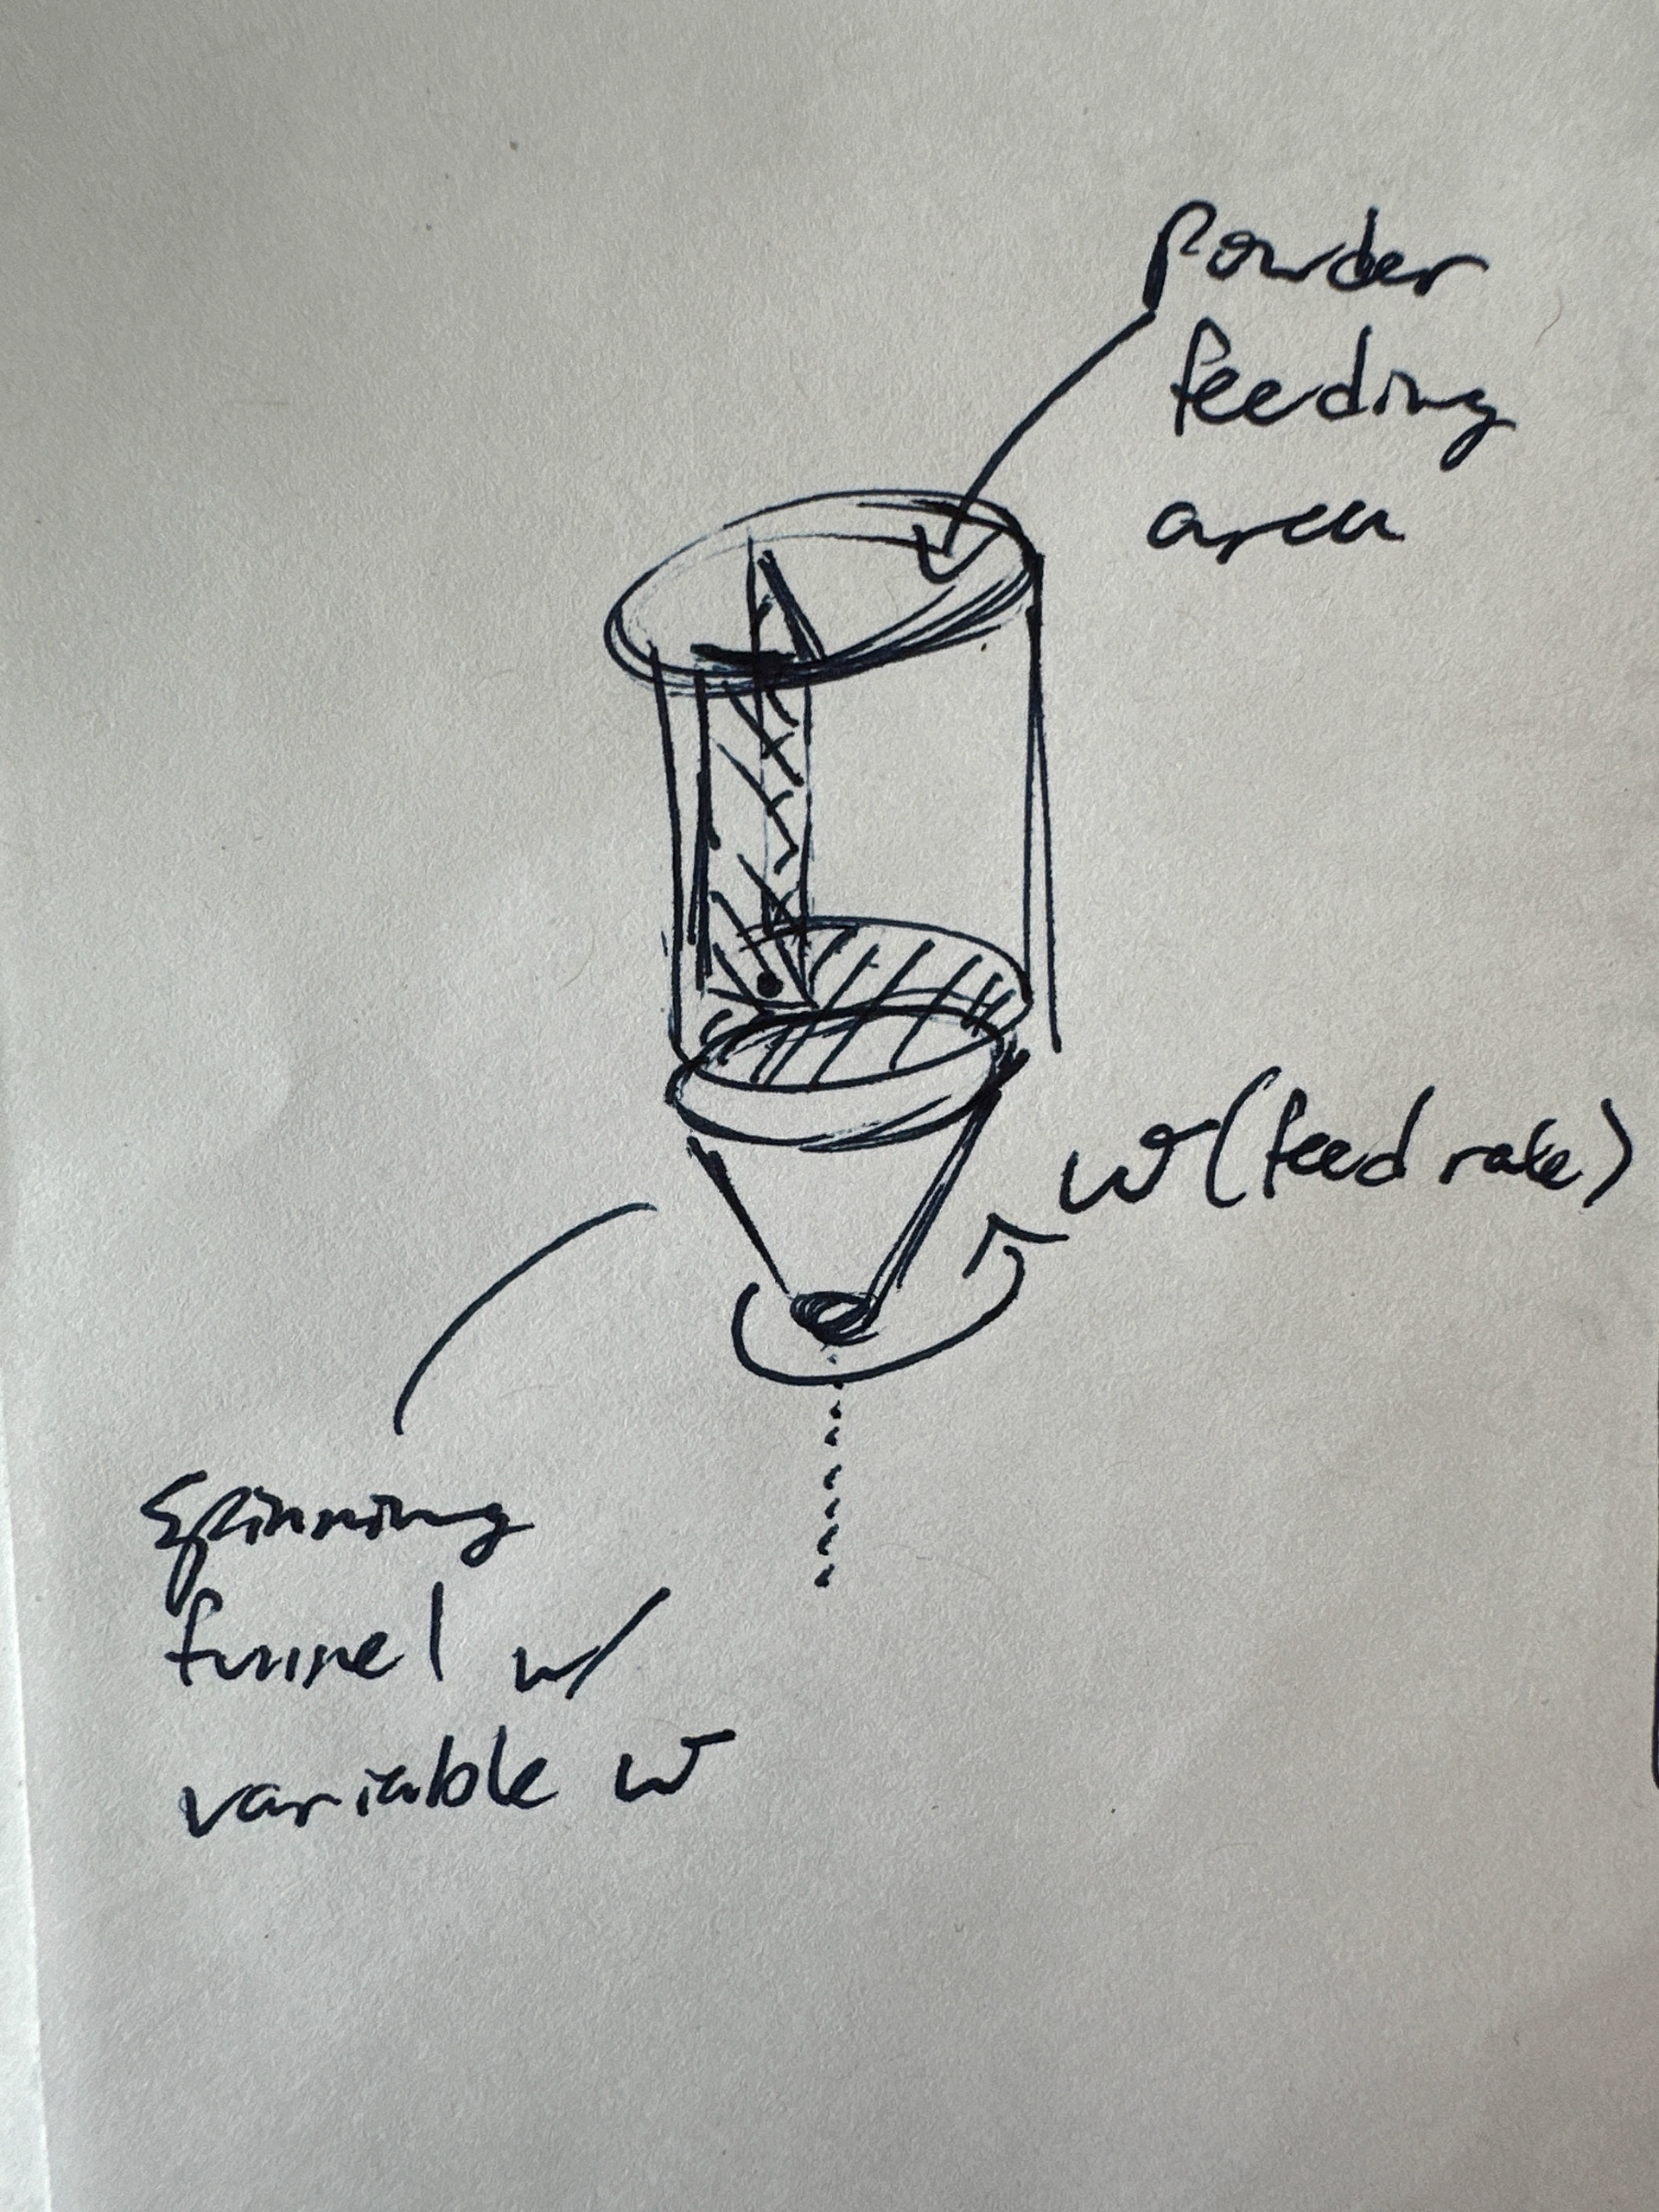 Powder
feeding
area
ω(feed rate)
Spinning
funnel w/
variable ω